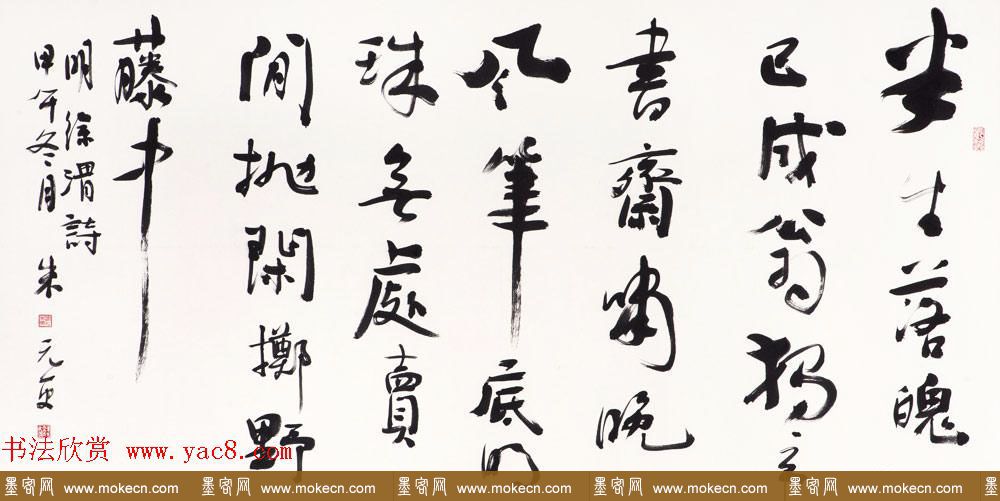 半生落魄
已成翁獨立
書齋嘯晚
風筆底明
珠無處賣
閒抛閑擲野
藤中
明徐渭詩
甲午冬月 朱元更
书法欣赏 www.yac8.com
墨客网 www.mokecn.com 墨客网 www.mokecn.com 墨客网 www.mokecn.com 墨客网 www.mokecn.com 墨客网 www.mokecn.com